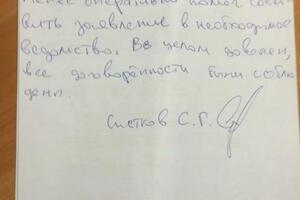 менее оперативно помог соста-
вить заявление в необходимое
ведомство. В целом доволен,
все договорённости были соблю
дены.
С. Г.